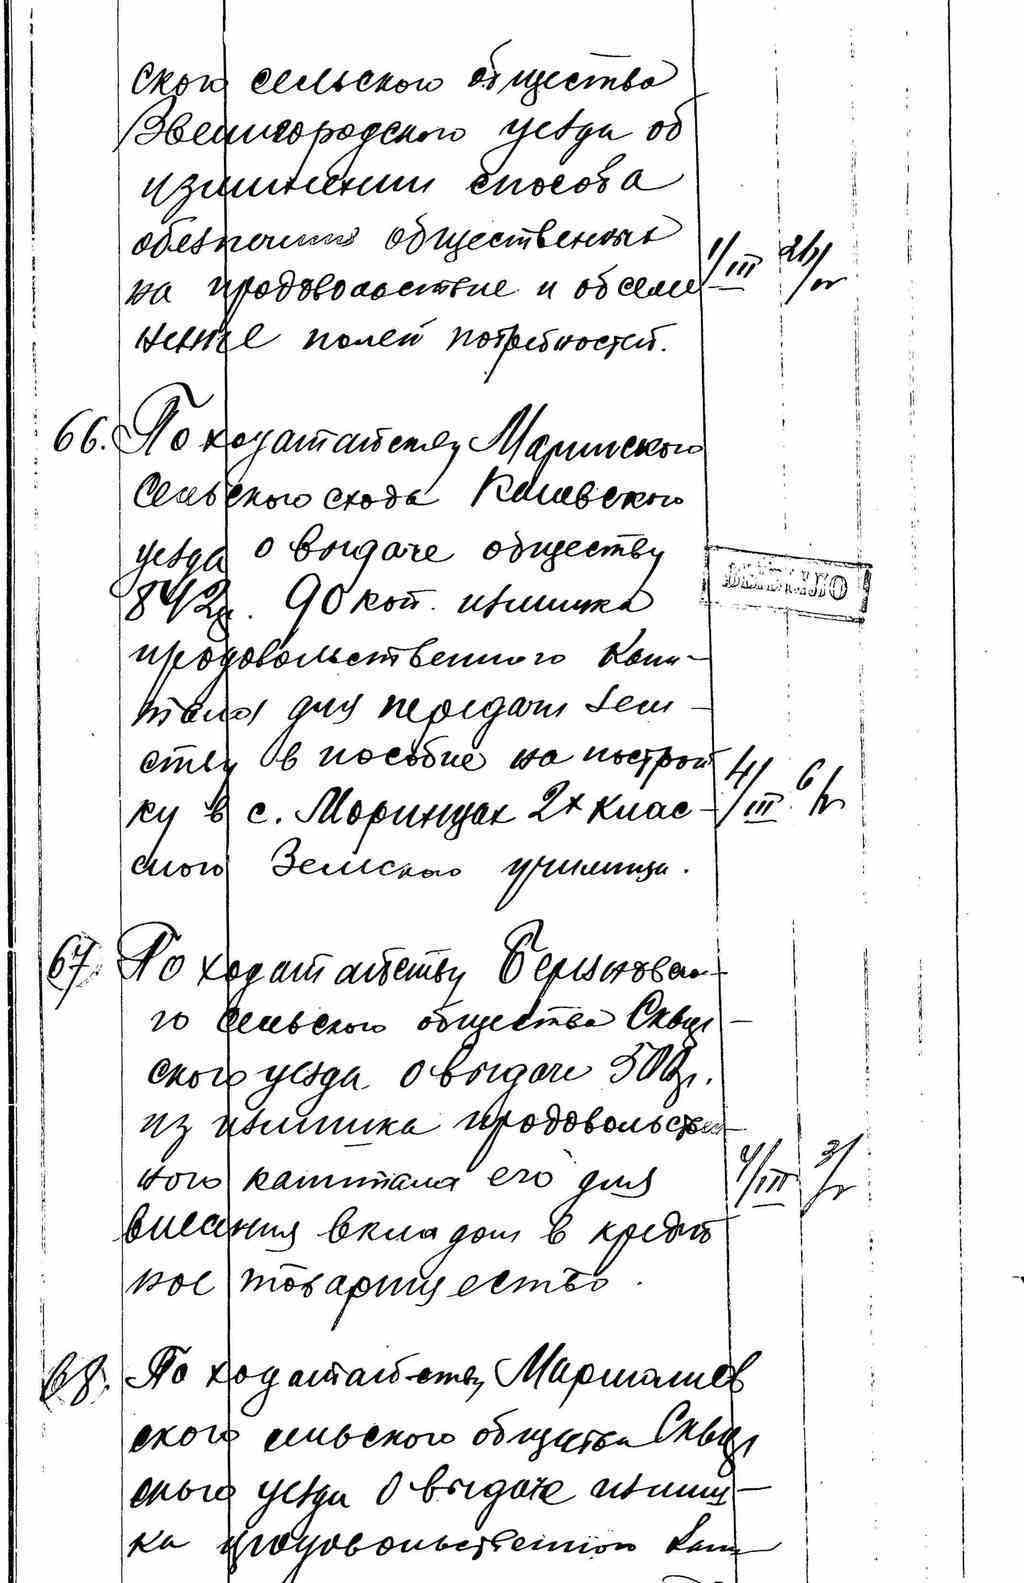 ского сельского общества
Звенигородского уезда об
изменении способа
обезпечения общественных
на продовольствие и обсеме
нение полей потребностей.
1/III 26/
66. По ходатайству Маринского
сельского схода Каневского
уезда о выдаче обществу
842р. 90 коп. излишка
продовольственного капи-
тала для передачи зем-
ству в пособие на построй
ку в с. Моринцах 2х клас-
4/III 6/
сного Земского училища.
67. По ходатайству
го сельского общества Сквир-
ского уезда о выдаче 500р.
из излишка продовольствен-
ного капитала его для
4/III 3/
внесения вкладом в кредит
ное товарищество.
68. По ходатайству
ского сельского общества Сквир
ского уезда о выдаче излиш-
ка продовольственного кап